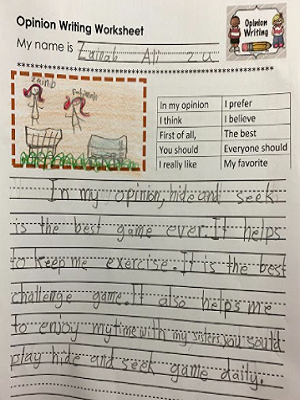 Opinion Writing Worksheet
Opinion
Writing
My name is Zainab Ali 2 U
zainb
In my opinion I prefer
I think I believe
First of all, The best
You should Everyone should
I really like My favorite
In my opinion, hide and seek
is the best game ever. It helps
to keep me exercise. It is the best
challenge game. It also helps me
to enjoy my time with my sisters. you sould
play hide and seek game daily.